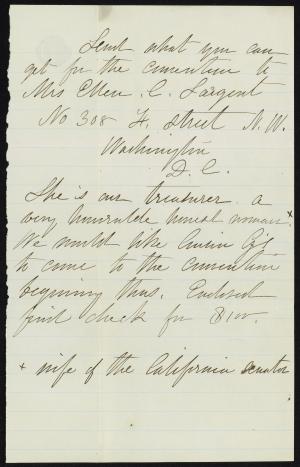 Send what you can
get for the convention to
Mrs Ellen. C. Sargent
No 308 F. Street N. W.
Washington
D. C.
She is our treasurer a
very honorable honest woman. x
We would like
to come to the convention
begining thus. Enclosed
find check for $100.
x wife of the California senator